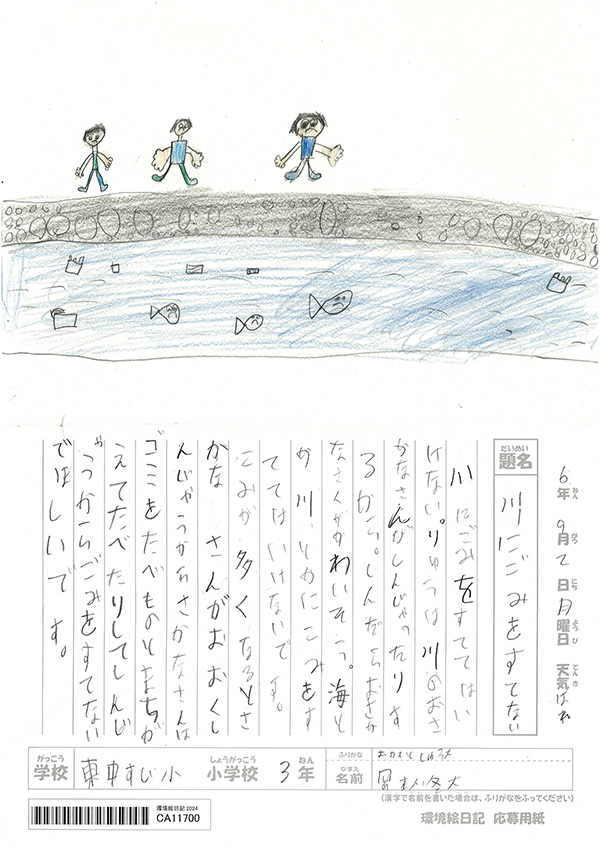 6年 9月 2日 月曜日 天気 はれ
ねん がつ にち ようび てんき
だいめい
題名 川にごみをすてない
川にごみをすててはい
けない。りゆうは川のおさ
かなさんがしんじゃったりす
るから。しんだらおさか
なさんがかわいそう。海と
か川、とかにごみをす
ててはいけないです。
ごみが多くなるとさ
かなさんがおおくし
んじゃうからさかなさんは
ゴミをたべものとまちが
えてたべたりしてしんじ
ゃうからごみをすてない
でほしいです。
がっこう しょうがっこう ねん
学校 東中すじ小 小学校 3年
ふりがな
なまえ
名前
(漢字で名前を書いた場合は、ふりがなをふってください)
環境絵日記 2024
CA11700
環境絵日記 応募用紙